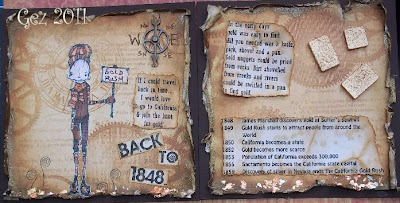 Gez 2011
N
W E
GOLD
RUSH
If I could travel
back in time
I would love
to go to California
& join the hunt
for gold
BACK
TO
1848
In the early days
gold was easy to find.
All you needed was a knife,
pick, shovel and a pan.
Gold nuggets could be pried
from rocks. Dirt shovelled
from creeks and rivers
could be swirled in a pan
to find gold.
1848 James Marshall discovers gold at Sutter's Sawmill
1849 Gold Rush starts to attract people from around the
world
1850 California becomes a state
1852 Gold becomes more scarce
1853 Population of California exceeds 300,000
1854 Sacramento becomes the California state capital
1859 Discovery of silver in Nevada ends the California Gold Rush